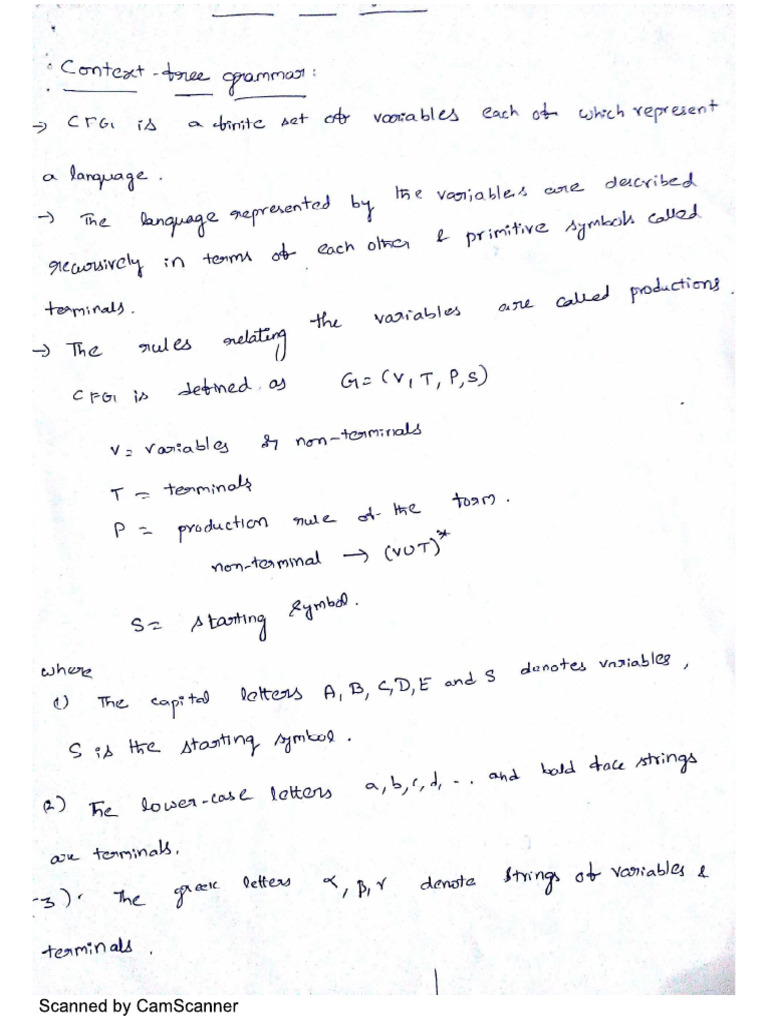 Context-free grammar:
→ CFG is a finite set of variables each of which represent
a language.
→ The language represented by the variables are described
recursively in terms of each other & primitive symbols called
terminals.
→ The rules relating the variables are called productions.
CFG is defined as G=(V,T,P,S)
V= variables or non-terminals
T = terminals
P = production rule of the form.
non-terminal → (VUT)*
S= starting symbol.
where
(1) The capital letters A,B,C,D,E and S denotes variables,
S is the starting symbol.
(2) The lower-case letters a,b,c,d,... and bold face strings
are terminals.
3). The greek letters α,β,γ denote strings of variables &
terminals.
Scanned by CamScanner